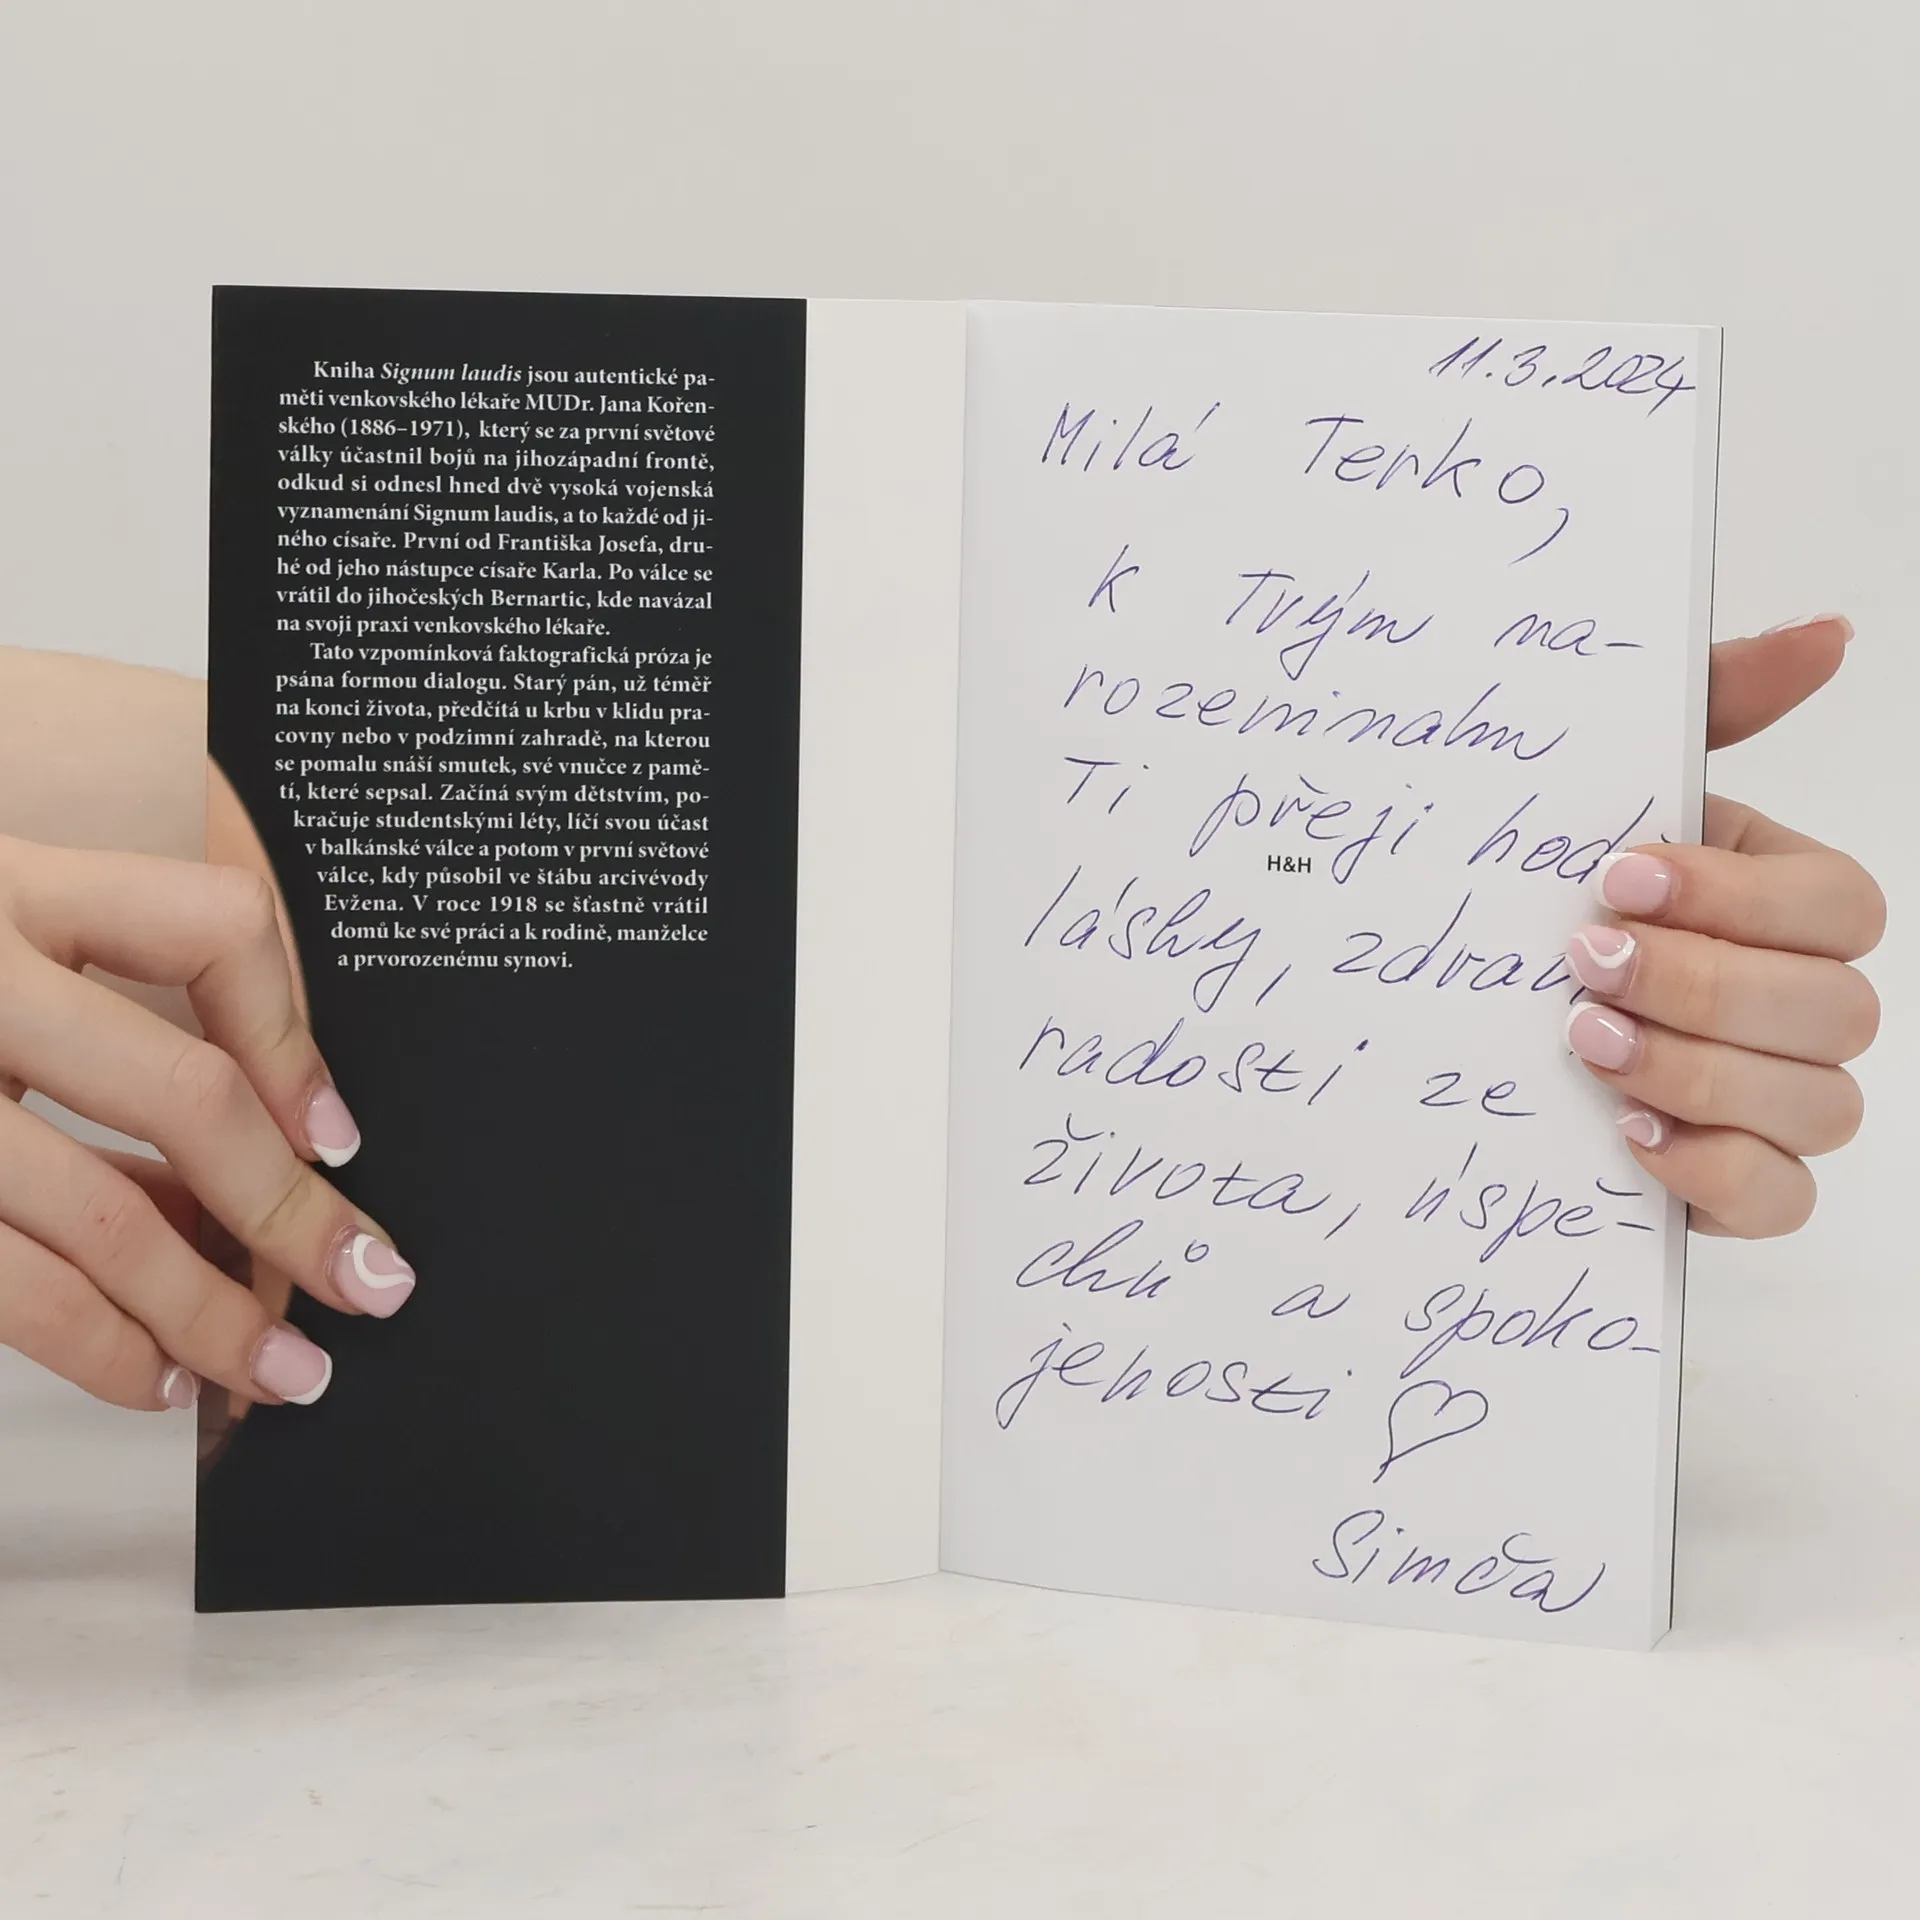 Kniha Signum laudis jsou autentické pa-
měti venkovského lékaře MUDr. Jana Kořen-
ského (1886–1971), který se za první světové
války účastnil bojů na jihozápadní frontě,
odkud si odnesl hned dvě vysoká vojenská
vyznamenání Signum laudis, a to každé od ji-
ného císaře. První od Františka Josefa, dru-
hé od jeho nástupce císaře Karla. Po válce se
vrátil do jihočeských Bernartic, kde navázal
na svoji praxi venkovského lékaře.
Tato vzpomínková faktografická próza je
psána formou dialogu. Starý pán, už téměř
na konci života, předčítá u krbu v klidu pra-
covny nebo v podzimní zahradě, na kterou
se pomalu snáší smutek, své vnučce z pamě-
tí, které sepsal. Začíná svým dětstvím, po-
kračuje studentskými léty, líčí svou účast
v balkánské válce a potom v první světové
válce, kdy působil ve štábu arcivévody
Evžena. V roce 1918 se šťastně vrátil
domů ke své práci a k rodině, manželce
a prvorozenému synovi.
11.3.2024
Milá Terko,
k Tvým na-
rozeninám
Ti přeji hod
H&H
lásky, zdrav
radosti ze
života, úspě-
chů a spoko-
jenosti ♡
Simča